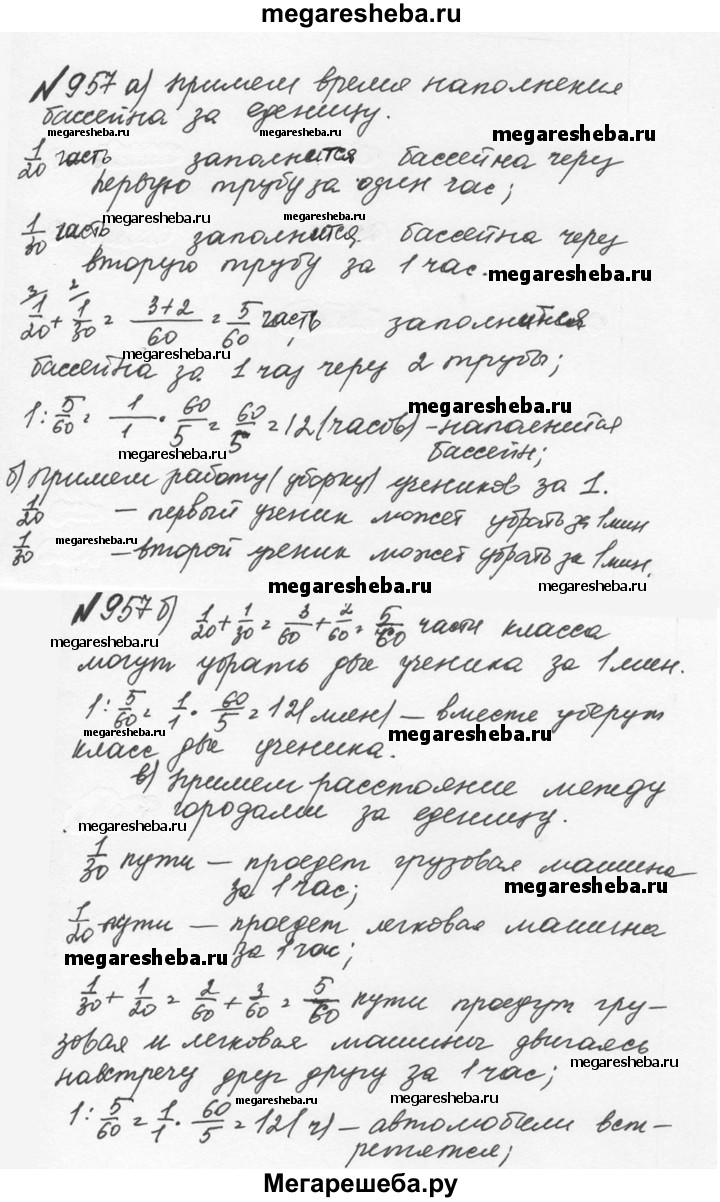 megaresheba.ru
№957 а) примем время наполнения
бассейна за еденицу.
megaresheba.ru megaresheba.ru megaresheba.ru
1/20 часть заполнится бассейна через
первую трубу за один час;
megaresheba.ru megaresheba.ru
1/30 часть заполнится бассейна через
вторую трубу за 1 час.
megaresheba.ru
3 2
1/20 + 1/30 = 3+2/60 = 5/60 часть заполнится
megaresheba.ru
бассейна за 1 час через 2 трубы;
1 : 5/60 = 1/1 · 60/5 = 60/5 = 12 (часов) - наполнится
megaresheba.ru
бассейн;
megaresheba.ru
б) Примем работу (уборку) учеников за 1.
1/20 – первый ученик может убрать за 1 мин
1/30 – второй ученик может убрать за 1 мин.
megaresheba.ru
megaresheba.ru megaresheba.ru
№957 б) 1/20 + 1/30 = 3/60 + 2/60 = 5/60 части класса
megaresheba.ru
могут убрать два ученика за 1 мин.
1 : 5/60 = 1/1 · 60/5 = 12 (мин) – вместе уберут
megaresheba.ru
класс две ученика.
в) примем расстояние между
городами за еденицу.
megaresheba.ru
1/30 пути – проедет грузовая машина
за 1 час;
megaresheba.ru
1/20 пути – проедет легковая машина
за 1 час;
megaresheba.ru
1/30 + 1/20 = 2/60 + 3/60 = 5/60 пути проедут гру-
зовая и легковая машины двигаясь
megaresheba.ru
навстречу друг другу за 1 час;
1 : 5/60 = 1/1 · 60/5 = 12 (ч) – автомобили вст-
ретятся;
Мегарешеба.ру